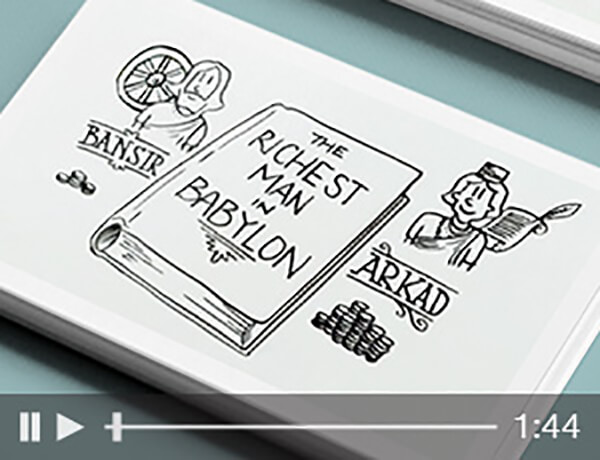 BANSIR
THE
RICHEST
MAN
IN
BABYLON
ARKAD
1:44